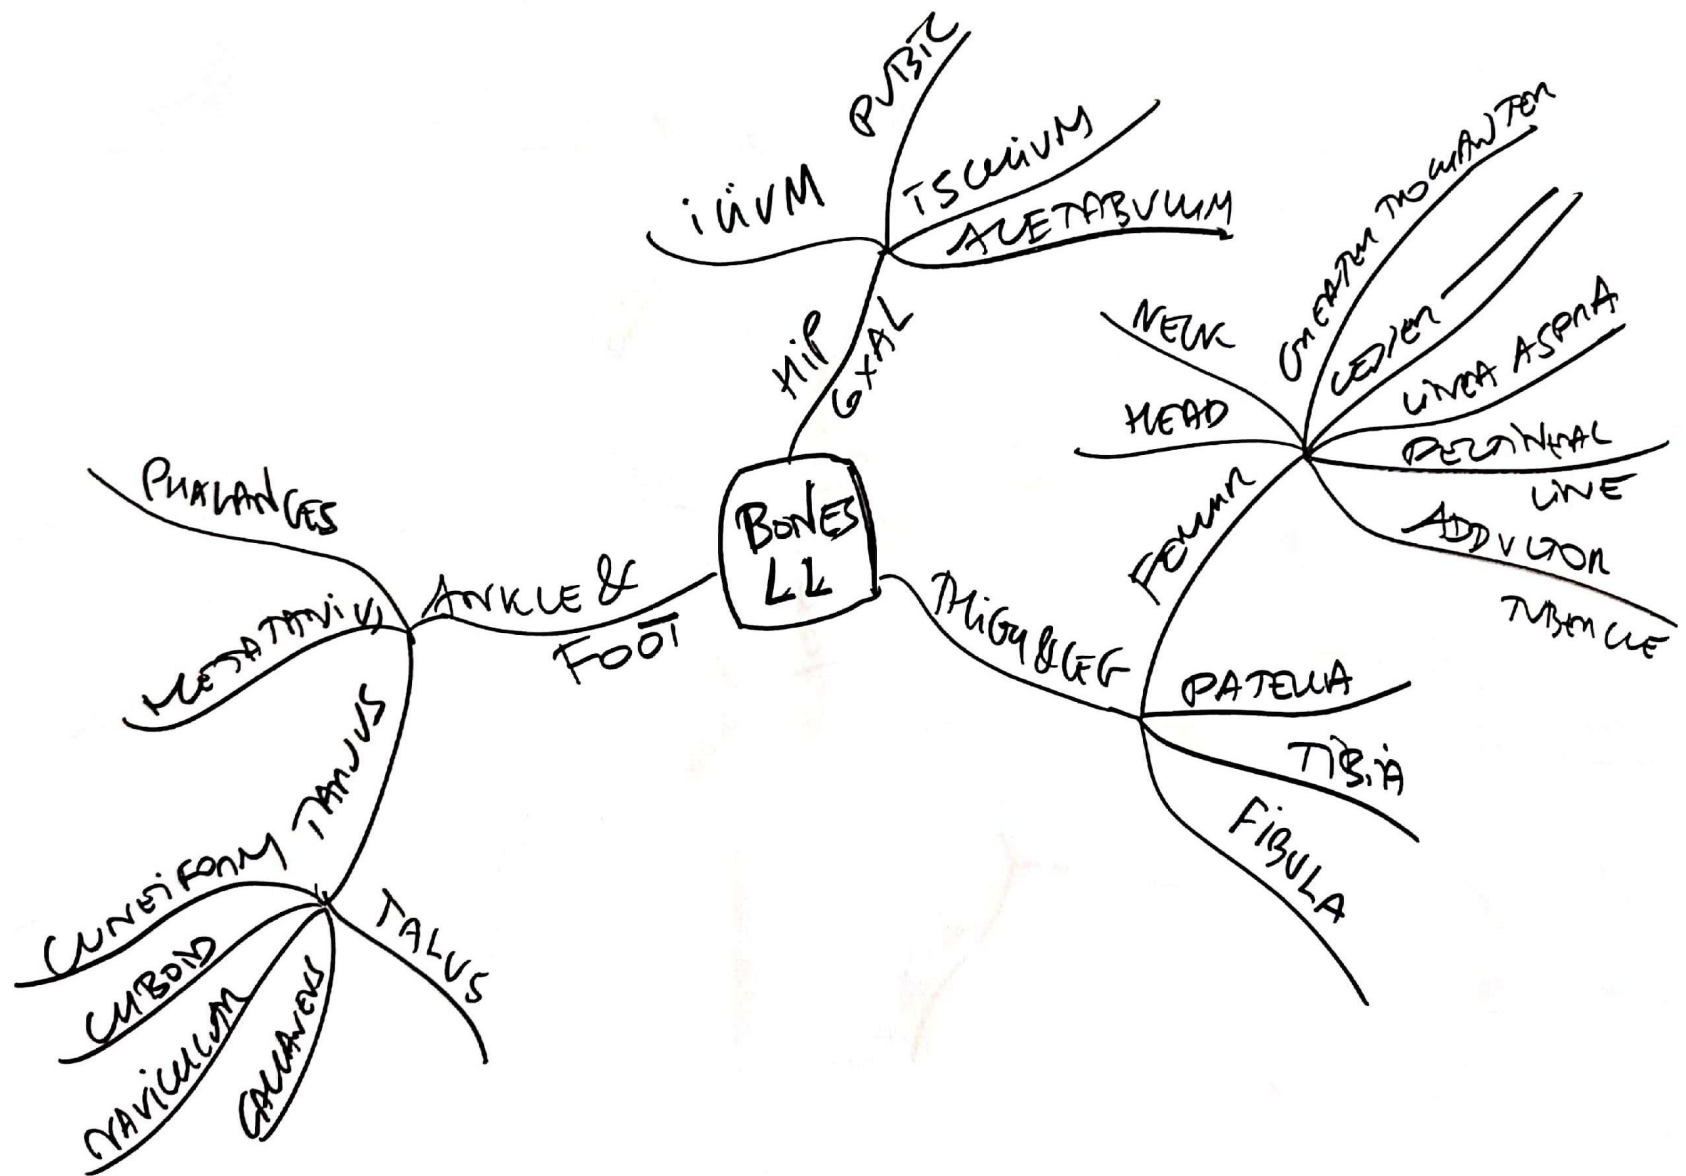 BONES
LL
HIP
COXAL
ILIUM
PUBIC
ISCHIUM
ACETABULUM
THIGH & LEG
FEMUR
HEAD
NECK
GREATER TROCHANTER
LESSER —
LINEA ASPRA
PECTINEAL
LINE
ADDUCTOR
TUBERCLE
PATELLA
TIBIA
FIBULA
ANKLE &
FOOT
PHALANGES
METATARSUS
TARSUS
CUNEIFORM
CUBOID
NAVICULAR
CALCANEUS
TALUS